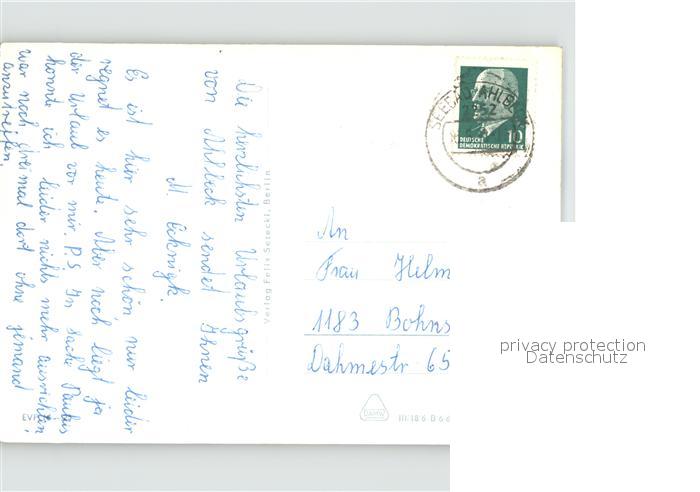 Die herzlichsten Urlaubsgrüße
von Ahlbeck sendet Ihnen
M.
Es ist hier sehr schön, nur leider
regnet es heute. Aber noch liegt ja
der Urlaub vor mir. P.S. In Sache Paulus
konnte ich leider nichts mehr ausrichten,
war noch dreimal dort ohne jemand
anzutreffen.
Verlag Felix Setecki, Berlin
SEEBAD AHLBECK
a
10
DEUTSCHE
DEMOKRATISCHE REPUBLIK
An
Frau Helm
1183 Bohns
Dahmestr 65
DAMW
III/18/6 B 6
EVP
privacy protection
Datenschutz